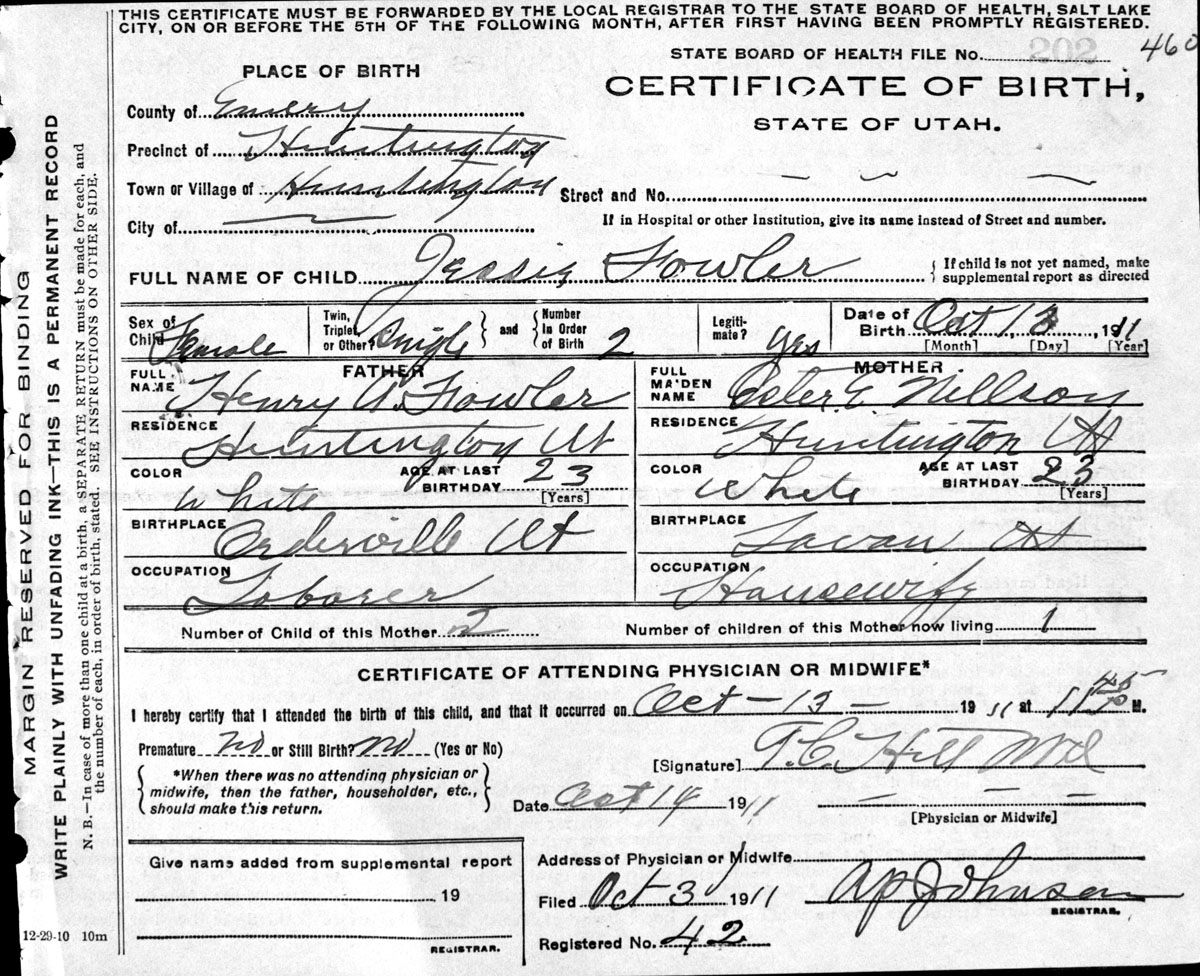 THIS CERTIFICATE MUST BE FORWARDED BY THE LOCAL REGISTRAR TO THE STATE BOARD OF HEALTH, SALT LAKE
CITY, ON OR BEFORE THE 5TH OF THE FOLLOWING MONTH, AFTER FIRST HAVING BEEN PROMPTLY REGISTERED.
460
STATE BOARD OF HEALTH FILE No.
PLACE OF BIRTH
CERTIFICATE OF BIRTH,
STATE OF UTAH.
County of Emery
Precinct of Huntington
Town or Village of Huntington
Street and No. — — —
City of —
If in Hospital or other Institution, give its name instead of Street and number.
FULL NAME OF CHILD Jessie Fowler { If child is not yet named, make supplemental report as directed
Sex of Child Female Twin, Triplet, or Other? Single } and { Number in Order of Birth 2 Legiti-mate? Yes Date of Birth Oct 13, 1911
[Month] [Day] [Year]
FATHER MOTHER
FULL NAME Henry A. Fowler FULL MAIDEN NAME E. Nellson
RESIDENCE Huntington Ut RESIDENCE Huntington Ut
COLOR White AGE AT LAST BIRTHDAY 23 [Years] COLOR White AGE AT LAST BIRTHDAY 23 [Years]
BIRTHPLACE Orderville Ut BIRTHPLACE Ut
OCCUPATION Laborer OCCUPATION Housewife
Number of Child of this Mother 2 Number of children of this Mother now living 1
CERTIFICATE OF ATTENDING PHYSICIAN OR MIDWIFE*
I hereby certify that I attended the birth of this child, and that it occurred on Oct – 13 – 1911 at 11 45 M.
Premature No or Still Birth? No (Yes or No)
[Signature] T.C. Hill MD
*When there was no attending physician or
midwife, then the father, householder, etc.,
should make this return.
Date Oct 14 1911 — — —
[Physician or Midwife]
Give name added from supplemental report
19
REGISTRAR.
Address of Physician or Midwife
Filed Oct 3 1911 AP Johnson
REGISTRAR.
Registered No. 42
12-29-10 10m
MARGIN RESERVED FOR BINDING
WRITE PLAINLY WITH UNFADING INK—THIS IS A PERMANENT RECORD
N. B.—In case of more than one child at a birth, a SEPARATE RETURN must be made for each, and
the number of each, in order of birth, stated. SEE INSTRUCTIONS ON OTHER SIDE.